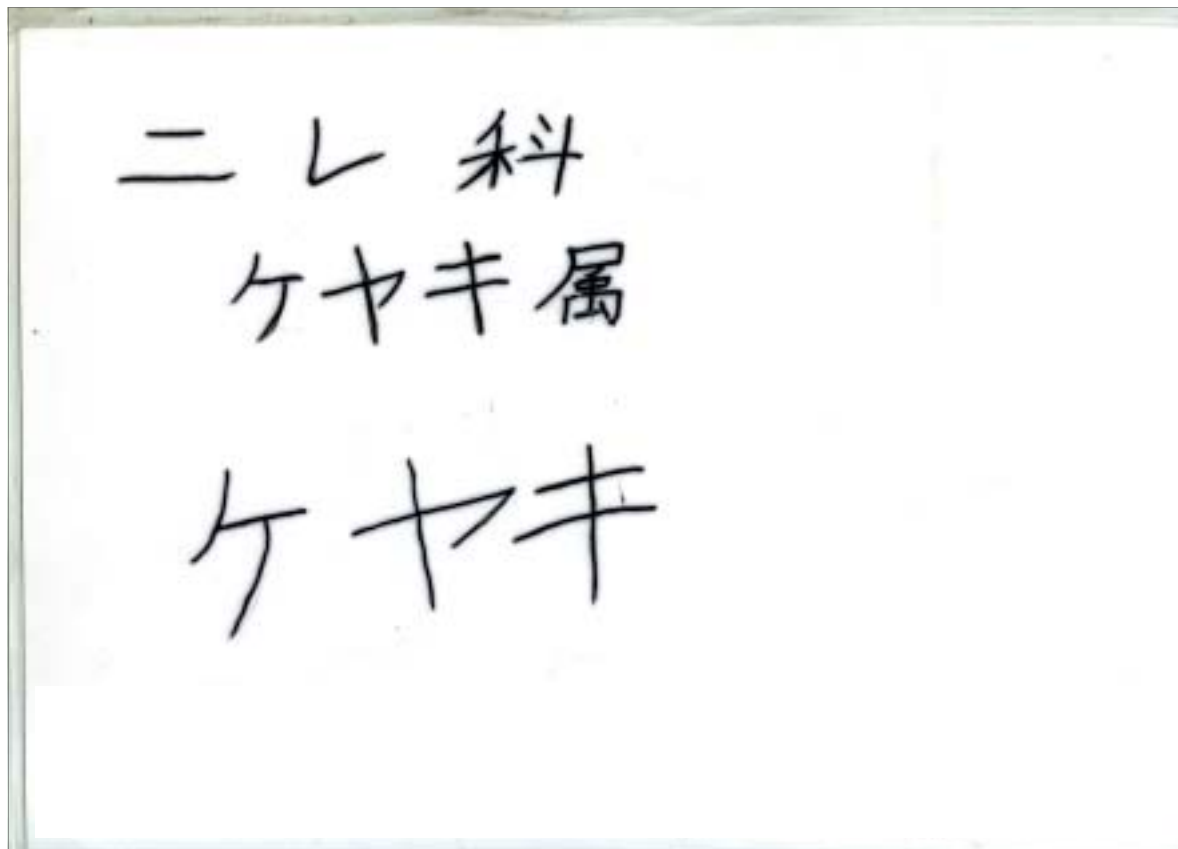 ニレ科
ケヤキ属
ケヤキ